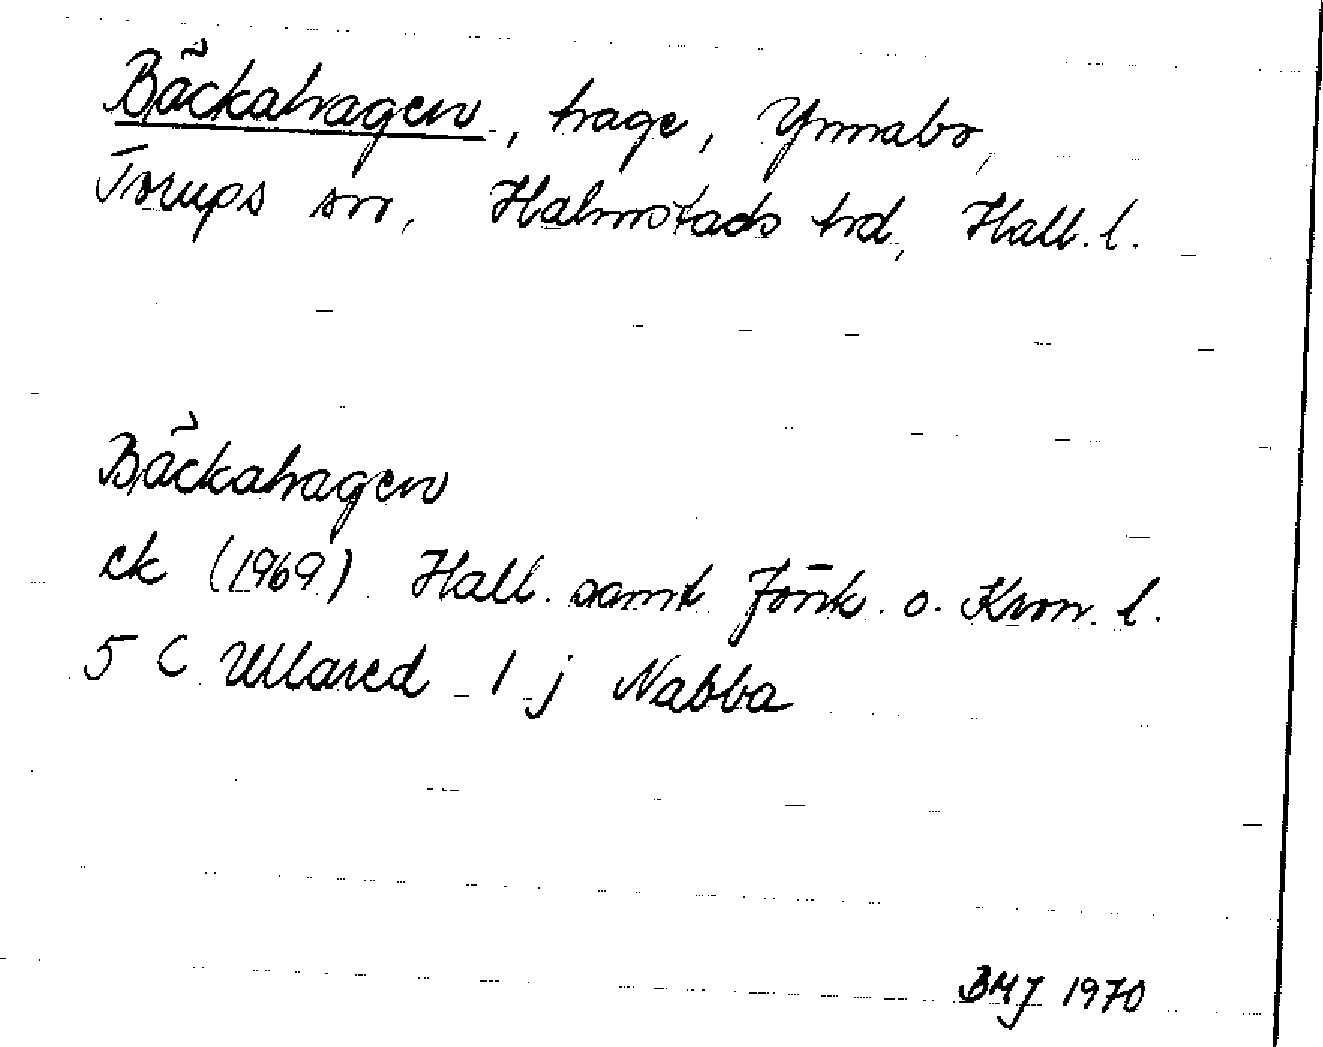 Bäckahagen, hage, Ynnabo,
Torups sn, Halmstads hd, Hall. l.
Bäckahagen
ek (1969) Hall. samt Jönk. o. Kron. l.
5 C Ullared 1 j Nabba
BMJ 1970